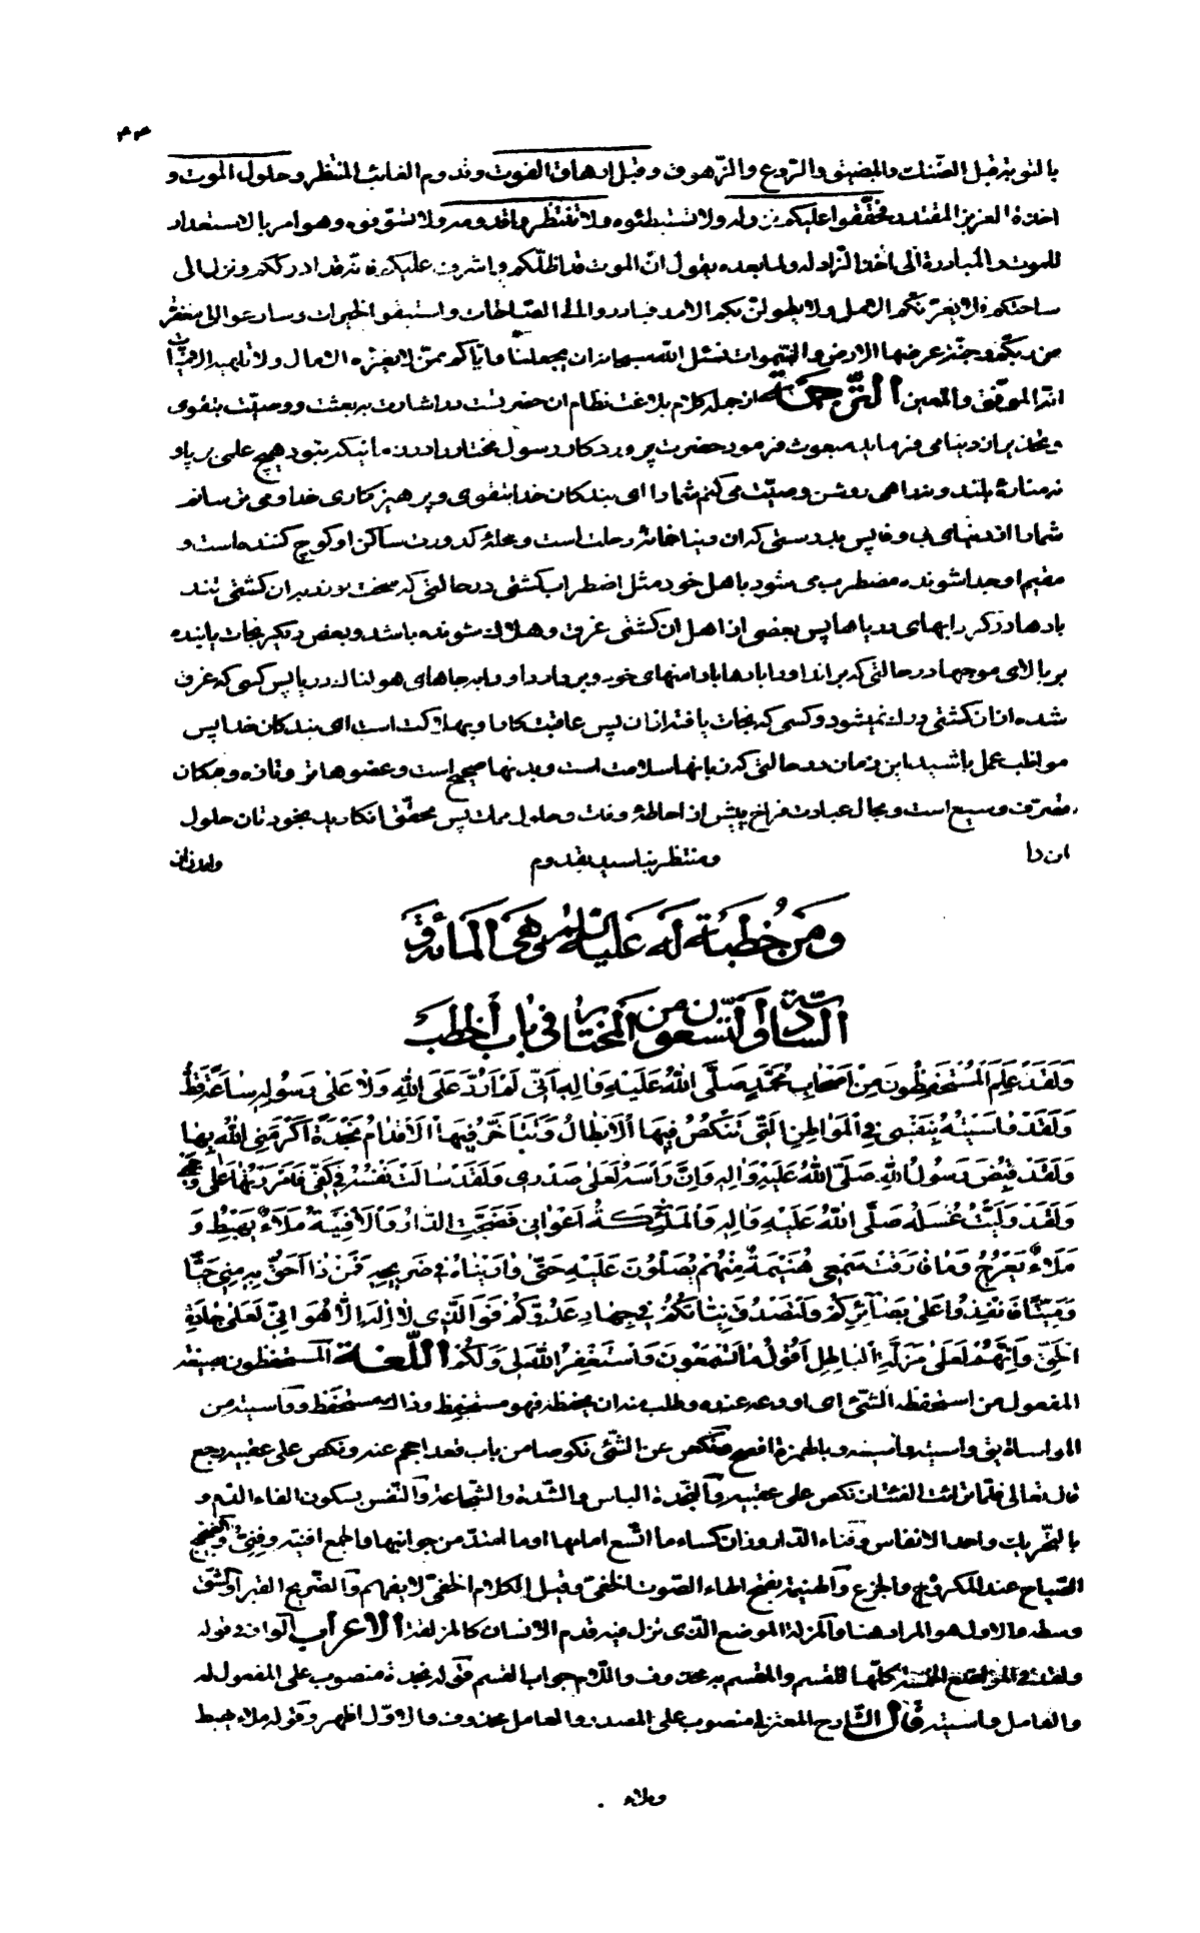 ۴۳
بالتوبة قبل الضنك والمضيق والرّوع والزّهوق وقبل ارهاق الفوت وقدوم الغائب المنتظر وحلول الموت و
اخذة العزيز المقتدر فحقّقوا عليكم نزوله ولا تستبطئوه ولا تنتظروا قدومه ولا تسوّفوه وهو امر بالاستعداد
للموت والمبادرة الى اخذ الزّاد له ولما بعده يقول انّ الموت قد اظلّكم واشرف عليكم فانّه قد ادرككم ونزل الى
ساحتكم فلا يغرّنّكم الامل ولا يطولنّ بكم الامد فبادروا الى الصّالحات واستبقوا الخيرات وسارعوا الى مغفرة
من ربكم وجنّة عرضها الارض والسّموات نسئل اللّه سبحانه ان يجعلنا وايّاكم ممّن لا يغرّه الامال ولا تلهيه الامنيّات
انّه الموفّق والمعين التّرجمة از جمله كلام بلاغت نظام ان حضرتست در اشارت به بعثت ووصيّت بتقوى
وتحذير از دنيا مى فرمايد مبعوث فرمود حضرت پروردكار رسول مختار را در زمانيكه نبود هيچ علمى بر پا و
نه مناره بلند ونه راهى روشن وصيّت مى كنم شما را اى بندكان خدا بتقوى وپرهيزكارى خدا ومى ترسانم
شما را از دنياى بى وفا پس بدرستى كه ان دنيا خانه رحلت است ومحلّه كدورت ساكن او كوچ كننده است و
مقيم او جدا شونده مضطرب مى شود باهل خود مثل اضطراب كشتى در حالتى كه سخت بوزند بر ان كشتى تند
بادها در گردابهاى درياها پس بعضى از اهل ان كشتى غرق وهلاك شونده باشد وبعض ديكر نجات يابنده
بر بالاى موجها در حالتى كه براند او را بادها با دامنهاى خود وبردارد او را بر جاهاى هولناك دريا پس كسى كه غرق
شده از ان كشتى درك نميشود وكسى كه نجات يافته از ان پس عاقبت كار او بهلاكت است اى بندكان خدا پس
مواظب عمل باشيد اين زمان در حالتى كه زبانها سلامت است وبدنها صحيح است وعضوها تر وتازه ومكان
تصرّف وسيع است ومجال عبادت فراخ پيش از احاطه وفات وحلول مرك پس محقّق انكاريد بخودتان حلول
ان را ومنتظر نباشيد بقدوم
ومن خطبة له عليه السّلام وهى المائة و
السّادسة والتّسعون من المختار فى باب الخطب
وَلَقَدْ عَلِمَ الْمُسْتَحْفَظُونَ مِنْ اَصْحابِ مُحَمَّدٍ صَلَّى اللّهُ عَلَيْهِ وَالِهِ اَنّى لَمْ اَرُدَّ عَلَى اللّهِ وَلا عَلى رَسُولِهِ ساعَةً قَطُّ
وَلَقَدْ واسَيْتُهُ بِنَفْسى فِى الْمَواطِنِ الَّتى تَنْكُصُ فيهَا الْاَبْطالُ وَتَتَاَخَّرُ فيهَا الْاَقْدامُ نَجْدَةً اَكْرَمَنِى اللّهُ بِها
وَلَقَدْ قُبِضَ رَسُولُ اللّهِ صَلَّى اللّهُ عَلَيْهِ وَالِهِ وَاِنَّ رَاْسَهُ لَعَلى صَدْرى وَلَقَدْ سالَتْ نَفْسُهُ فى كَفّى فَاَمْرَرْتُها عَلى وَجْهى
وَلَقَدْ وَلّيتُ غُسْلَهُ صَلَّى اللّهُ عَلَيْهِ وَالِهِ وَالْمَلائِكَةُ اَعْوانى فَضَجَّتِ الدّارُ وَالْاَفْنِيَةُ مَلَاءٌ يَهْبِطُ وَ
مَلَاءٌ يَعْرُجُ وَما فارَقَتْ سَمْعى هَيْنَمَةٌ مِنْهُمْ يُصَلُّونَ عَلَيْهِ حَتّى وارَيْناهُ فى ضَريحِهِ فَمَنْ ذا اَحَقُّ بِهِ مِنّى حَيًّا
وَمَيِّتًا فَانْفِذُوا عَلى بَصآئِرِكُمْ وَلْتَصْدُقْ نِيّاتُكُمْ فى جِهادِ عَدُوِّكُمْ فَوَالَّذى لا اِلهَ اِلّا هُوَ اِنّى لَعَلى جادَّةِ
الْحَقِّ وَاِنَّهُمْ لَعَلى مَزَلَّةِ الْباطِلِ اَقُولُ ما تَسْمَعُونَ وَاَسْتَغْفِرُ اللّهَ لى وَلَكُمْ اللّغة المستحفظون بصيغة
المفعول من استحفظه الشّىء اى اودعه عنده وطلب منه ان يحفظه فهو مستحفِظ وذاك مستحفَظ وواسيته من
المواساة يق واسيته وآسيته وبالهمزة افصح ونكص عن الشّىء نكوصا من باب قعد احجم عنه ونكص على عقبيه رجع
قال تعالى فلمّا ترائت الفئتان نكص على عقبيه والنّجدة الباس والشّدة والشّجاعة والنّفس بسكون الفاء الدّم و
بالتّحريك واحد الانفاس وفناء الدّار وزان كساء ما اتّسع امامها او ما امتدّ من جوانبها والجمع افنية وفنى والضّجيج
الصّياح عند المكروه والجزع والهينمة بفتح الهاء الصّوت الخفىّ وقيل الكلام الخفىّ لا يفهم والضّريح القبر او الشّق
وسطه والاول هو المراد هنا والمزلة الموضع الّذى تزل فيه قدم الانسان كالمزلقة الاعراب الواو فى قوله
ولقد فى المواضع الخمسة كلّها للقسم والمقسم به محذوف واللّام جواب القسم وقوله نجدة منصوب على المفعول له
والعامل واسيته قال الشّارح المعتزلى منصوب على المصدر والعامل محذوف والاوّل اظهر وقوله ملاء يهبط
وملاء